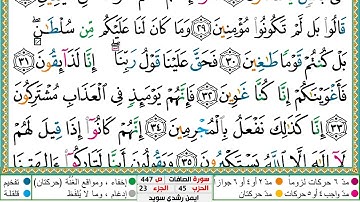 قَالُوا۟ بَل لَّمْ تَكُونُوا۟ مُؤْمِنِينَ ٢٩ وَمَا كَانَ لَنَا عَلَيْكُم مِّن سُلْطَٰنٍۭ
بَلْ كُنتُمْ قَوْمًا طَٰغِينَ ٣٠ فَحَقَّ عَلَيْنَا قَوْلُ رَبِّنَآ إِنَّا لَذَآئِقُونَ ٣١
فَأَغْوَيْنَٰكُمْ إِنَّا كُنَّا غَٰوِينَ ٣٢ فَإِنَّهُمْ يَوْمَئِذٍ فِى ٱلْعَذَابِ مُشْتَرِكُونَ
٣٣ إِنَّا كَذَٰلِكَ نَفْعَلُ بِٱلْمُجْرِمِينَ ٣٤ إِنَّهُمْ كَانُوٓا۟ إِذَا قِيلَ لَهُمْ
لَآ إِلَٰهَ إِلَّا ٱللَّهُ يَسْتَكْبِرُونَ ٣٥ وَيَقُولُونَ أَئِنَّا لَتَارِكُوٓا۟ ءَالِهَتِنَا
مدّ ٦ حركات لزوما مدّ ٢ أو ٤ أو ٦ جوازا إخفاء، ومواقع الغنّة (حركتان) تفخيم
مدّ واجب ٤ أو ٥ حركات مدّ حركتان إدغام، وما لا يُلفظ قلقلة
سورة الصافات ص 447
الحزب 45 الجزء 23
أيمن رشدي سويد